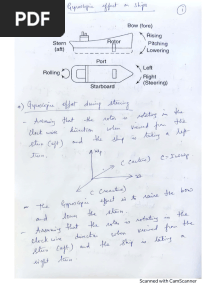 PDF
Gyroscopic effect on Ships
1
Bow (fore)
Rising
Pitching
Lowering
Stern
(aft)
Rotor
Port
Rolling
Left
Right
(Steering)
Starboard
a) Gyroscopic effect during steering
- Assuming that the rotor is rotating in the
clock wise direction when viewed from the
stern (aft) and the ship is taking a left
turn.
C (active)
C (reactive)
- The Gyroscopic effect is to raise the bow
and lower the stern.
- Assuming that the rotor is rotating in the
clock wise direction when viewed from the
stern (aft) and the ship is taking a
right turn.
Scanned with CamScanner